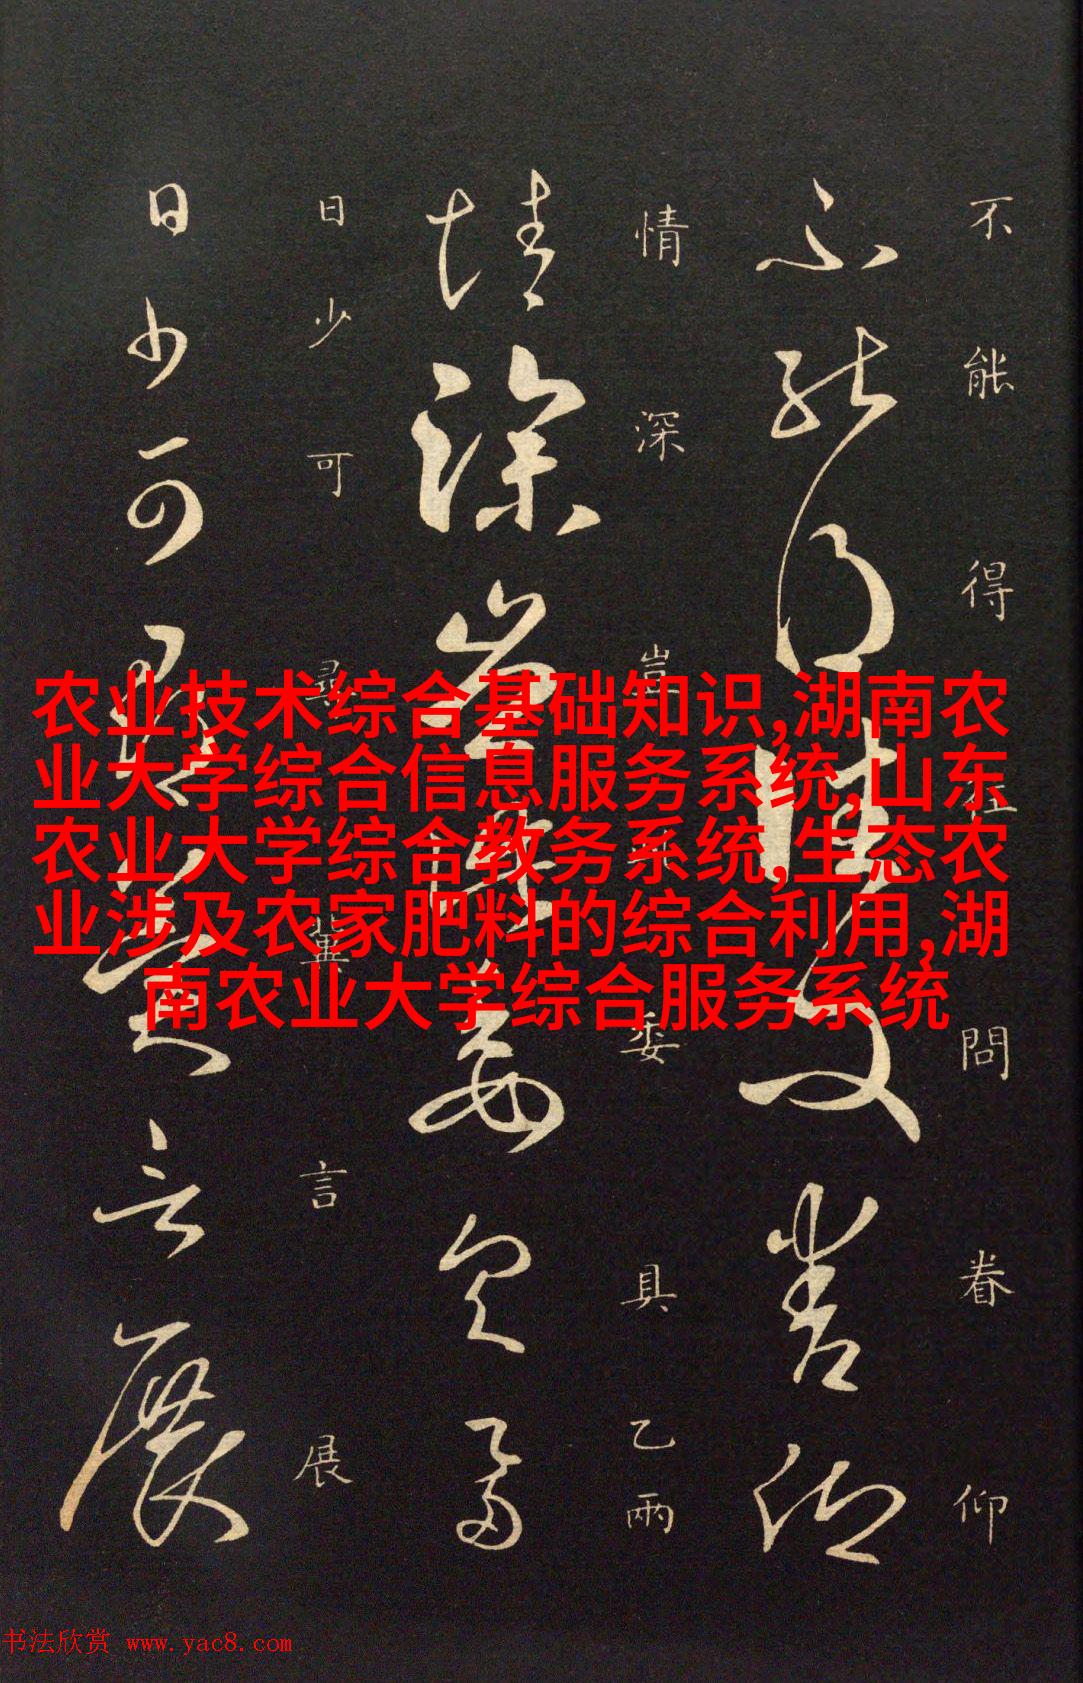 不能得問眷仰
不能得問眷仰
情深豈委具乙兩
情深豈委具乙兩
日少可尋冀言展
日少可尋冀言展
农业技术综合基础知识,湖南农
业大学综合信息服务系统,山东
农业大学综合教务系统,生态农
业涉及农家肥料的综合利用,湖
南农业大学综合服务系统
书法欣赏 www.yac8.com